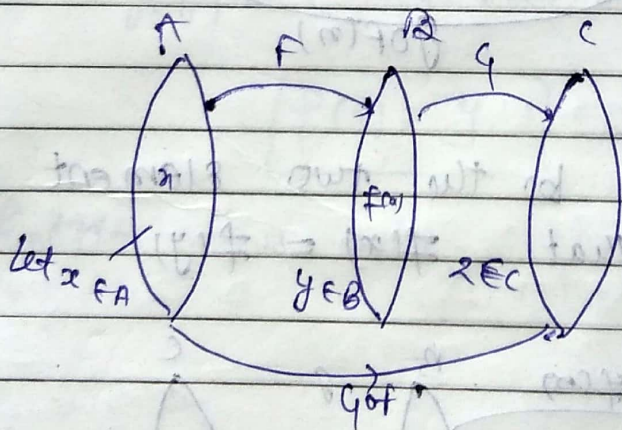 A B C
F G
x F(x)
Let x ∈ A y ∈ B z ∈ C
Gof